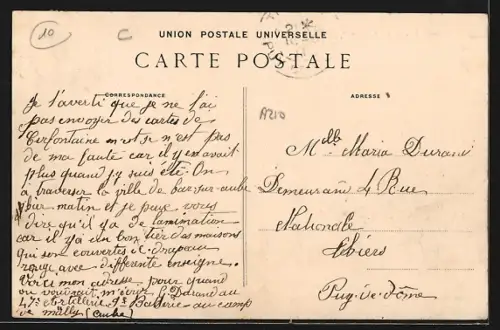 10
C
UNION POSTALE UNIVERSELLE
CARTE POSTALE
CORRESPONDANCE
ADRESSE
A210
Je t'averti que je ne t'ai
pas envoyer des cartes de
Cerfontaine n'est pas
de ma faute car il y en avait
plus quand j'y suis été. On
a traverser la ville de bar-sur-aube
hier matin et je peux vous
dire qu'il y a de lamination
car il y a un bon tier des maisons
qui son couvertes de drapeau
rouge avec differente enseigne.
Voici mon adresse pour quand
on voudrait m'écrire Durand au
47e artillerie 9e Batterie au camp
de mailly (Aube)
Melle Maria Durand
Demeurant 4 Rue
Nationale
Thiers
Puy-de-dôme